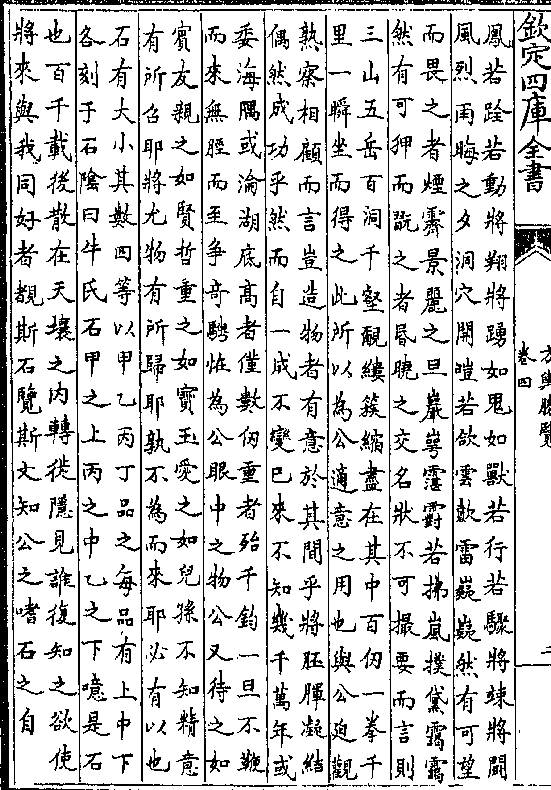 欽定四庫全書
方輿勝覽
卷四
二
鳳若跧若動將翔將踴如鬼如獸若行若驟將竦將鬭
風烈雨晦之夕洞穴開皚若欱雲歕雷嶷嶷然有可望
而畏之者煙霽景麗之旦巖崿霮䨴若拂嵐撲黛靄靄
然有可狎而翫之者昏曉之交名狀不可撮要而言則
三山五岳百洞千壑覼縷簇縮盡在其中百仞一拳千
里一瞬坐而得之此所以為公適意之用也與公迫觀
熟察相顧而言豈造物者有意於其間乎將胚腪凝結
偶然成功乎然而自一成不變已來不知幾千萬年或
委海隅或淪湖底高者僅數仞重者殆千鈞一旦不鞭
而來無脛而至爭奇騁怪為公眼中之物公又待之如
賓友親之如賢哲重之如寶玉愛之如兒孫不知精意
有所召耶將尤物有所歸耶孰不為而來耶必有以也
石有大小其數四等以甲乙丙丁品之每品有上中下
各刻于石陰曰牛氏石甲之上丙之中乙之下噫是石
也百千載後散在天壤之内轉徙隱見誰復知之欲使
將來與我同好者覩斯石覽斯文知公之嗜石之自